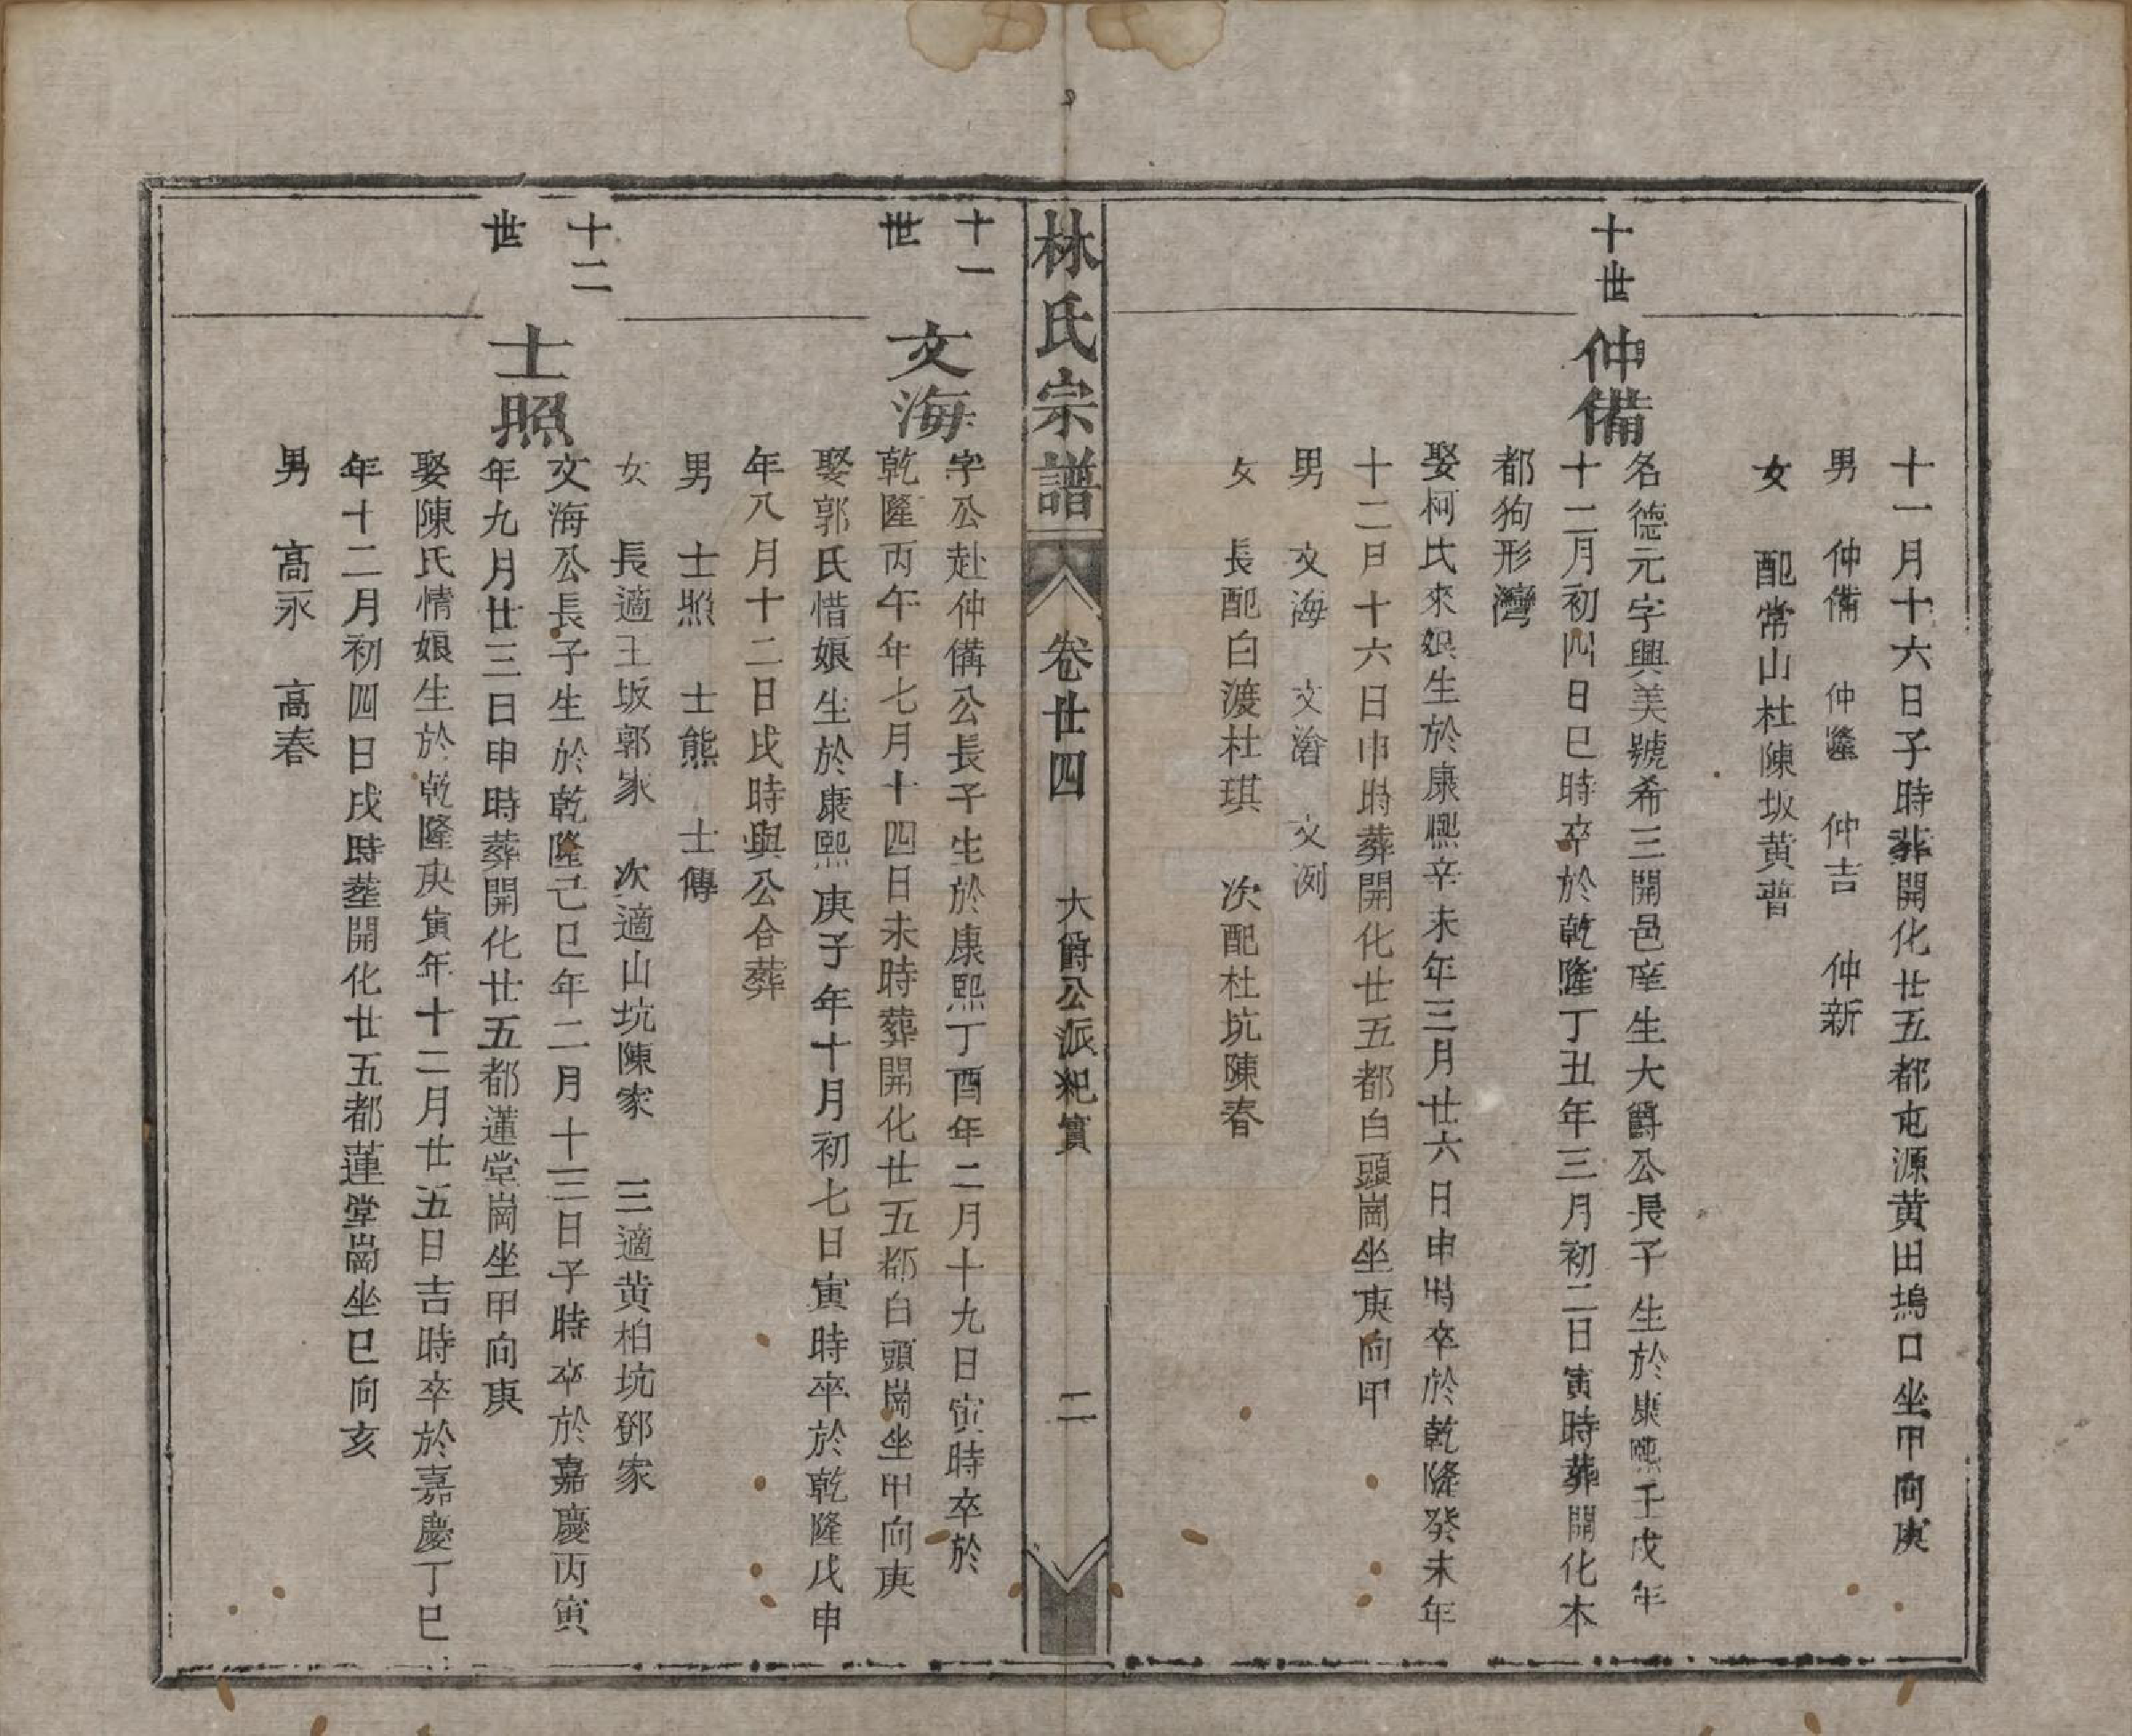 十一月十六日子時葬開化廿五都屯源黄田塢口坐甲向庚
男　仲備　仲隆　仲吉　仲新
女　配常山杜陳坂黄普
十世
仲備
名德元字興美號希三開邑庠生大爵公長子生於康熙壬戌年
十二月初四日巳時卒於乾隆丁丑年三月初二日寅時葬開化本
都狗形灣
娶柯氏來娘生於康熙辛未年三月廿六日申時卒於乾隆癸未年
十二月十六日申時葬開化廿五都白頭崗坐庚向甲
男　文海　文濬　文洌
女　長配白渡杜琪　次配杜坑陳春
林氏宗譜
卷廿四　大爵公派紀實　二
十一世
文海
字公赴仲備公長子生於康熙丁酉年二月十九日寅時卒於
乾隆丙午年七月十四日未時葬開化廿五都白頭崗坐甲向庚
娶郭氏惜娘生於康熙庚子年十月初七日寅時卒於乾隆戊申
年八月十二日戌時與公合葬
男　士照　士熊　士傳
女　長適王坂郭家　次適山坑陳家　三適黄柏坑鄧家
十二世
士照
文海公長子生於乾隆己巳年二月十三日子時卒於嘉慶丙寅
年九月廿三日申時葬開化廿五都蓮堂崗坐甲向庚
娶陳氏情娘生於乾隆庚寅年十二月廿五日吉時卒於嘉慶丁巳
年十二月初四日戌時葬開化廿五都蓮堂崗坐巳向亥
男　高永　高春